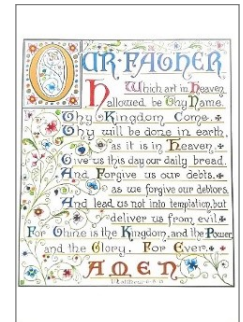 OUR·FATHER
Which art in Heaven
hallowed be Thy Name.
Thy Kingdom Come.
Thy will be done in earth,
as it is in Heaven.
Give us this day our daily bread.
And Forgive us our debts.
as we forgive our debtors.
And lead us not into temptation, but
deliver us from evil.
For Thine is the Kingdom, and the Power,
and the Glory, For Ever.
AMEN